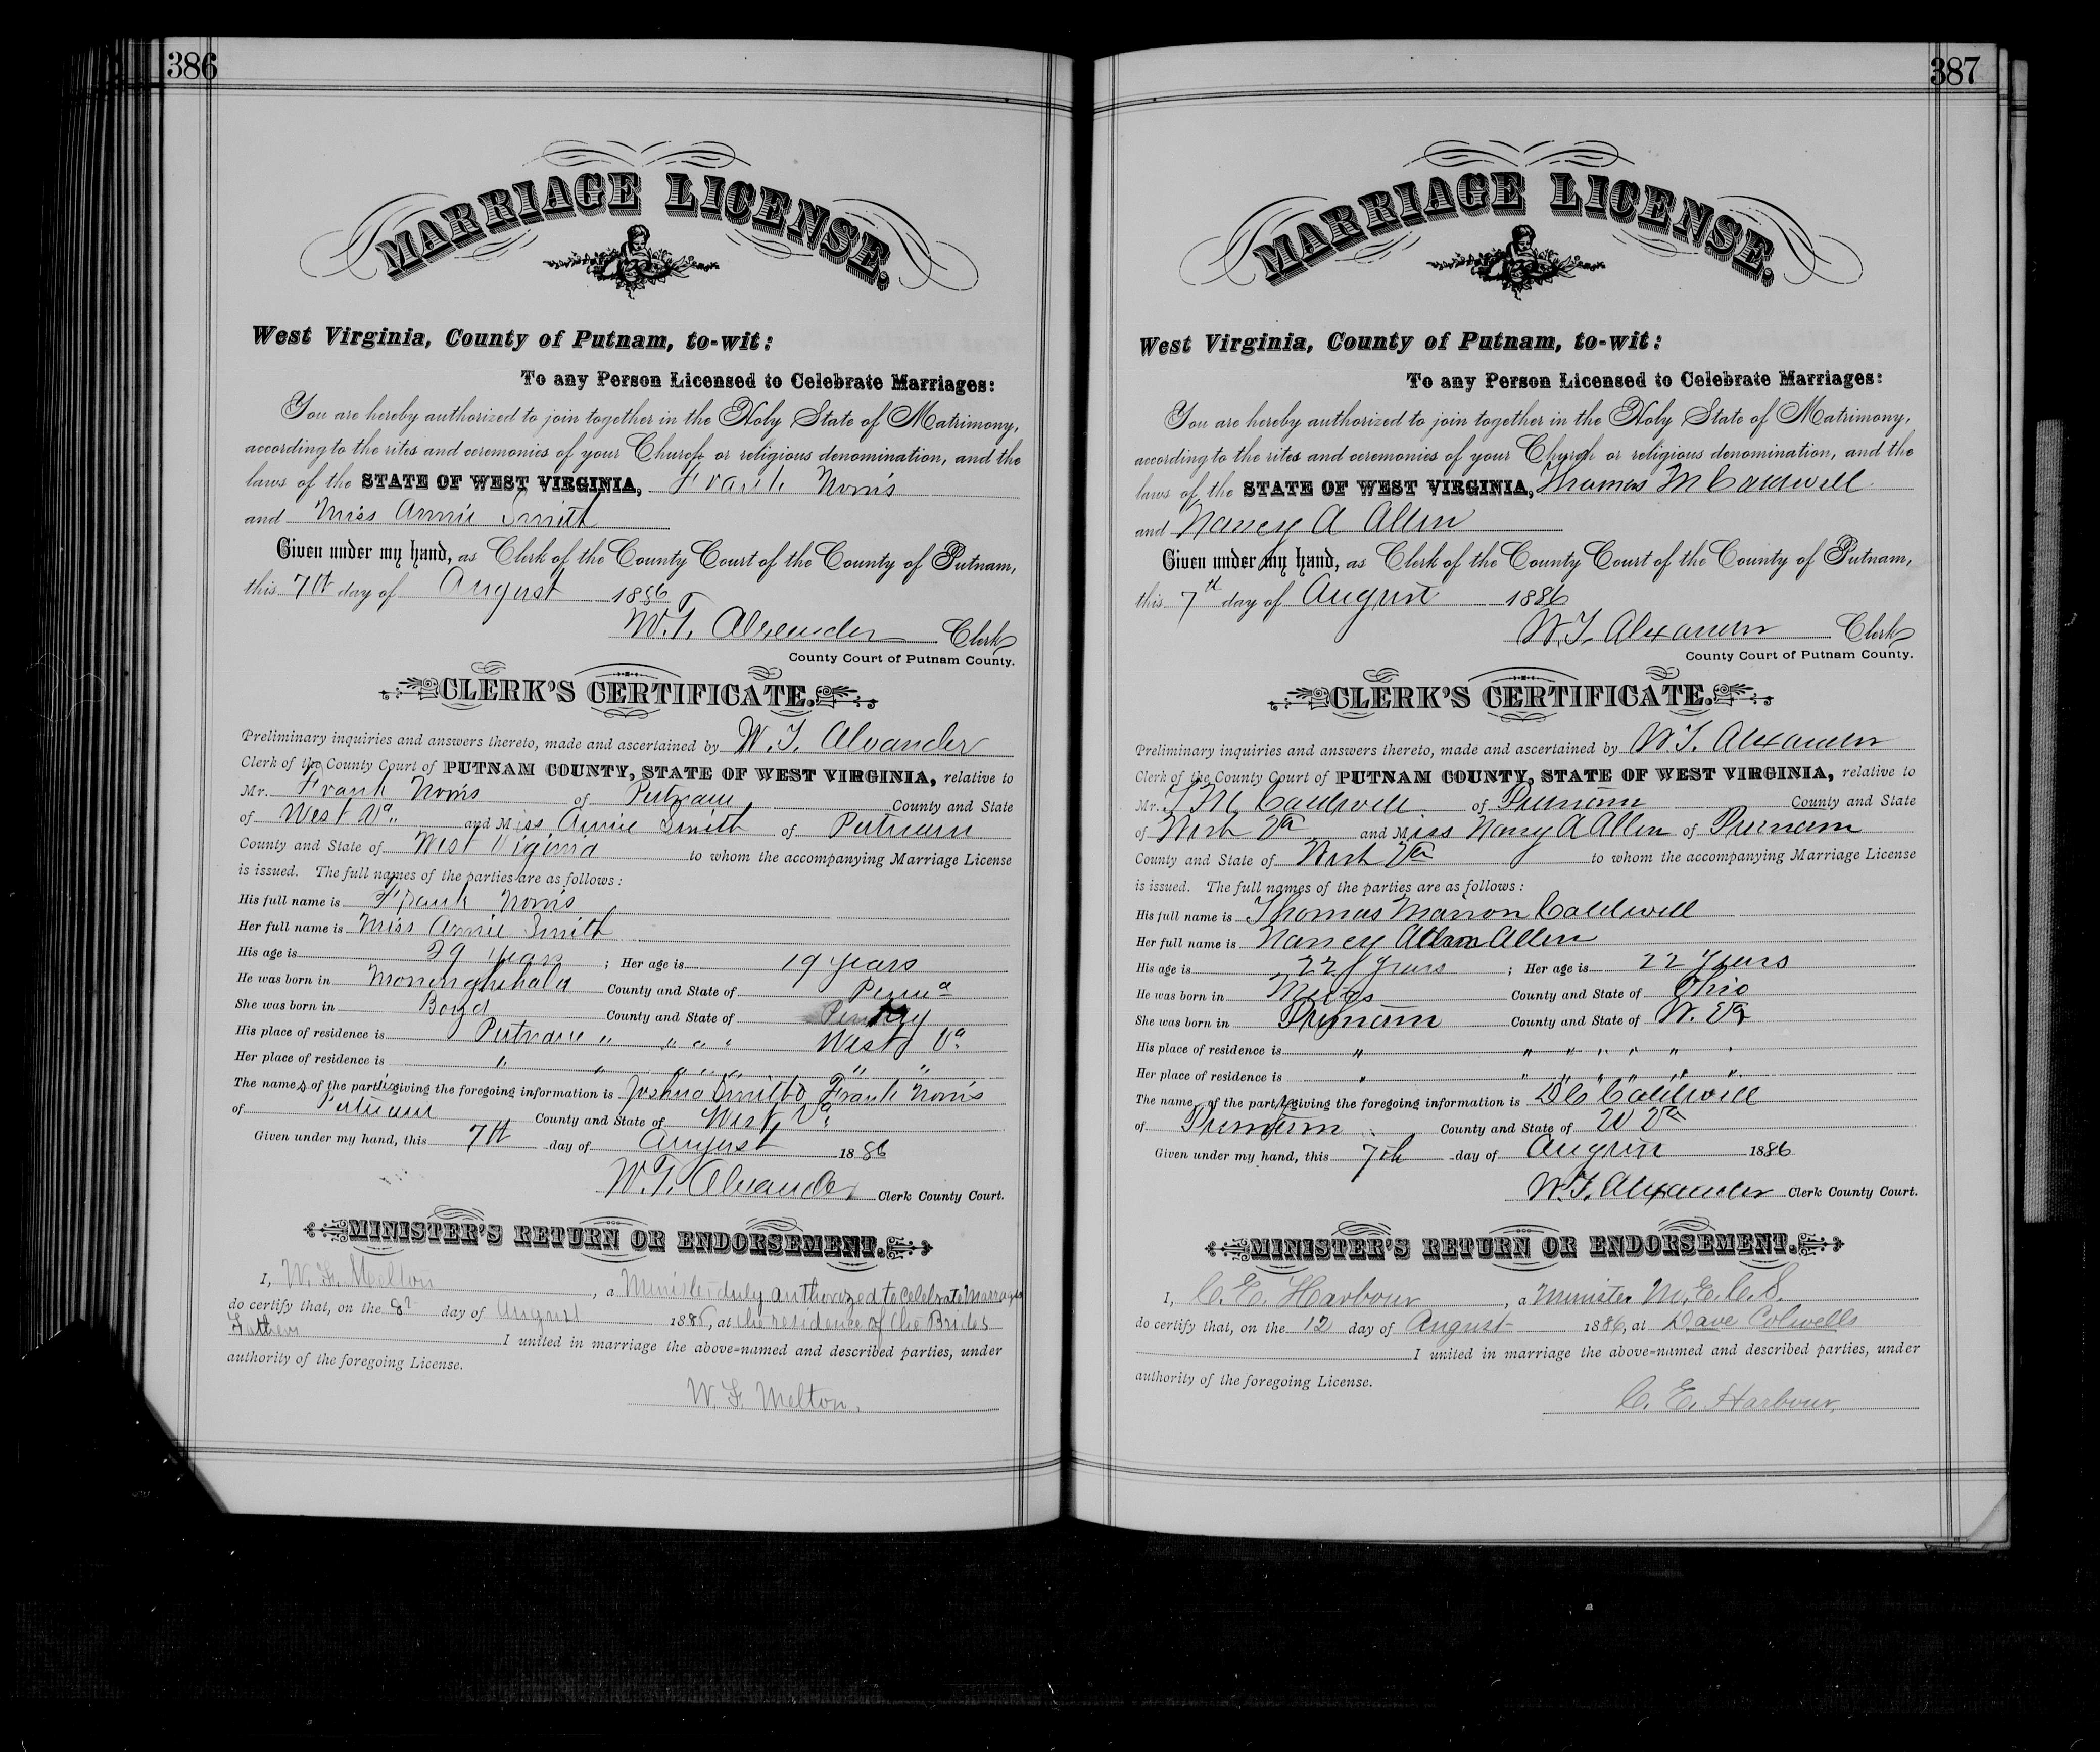 386
MARRIAGE LICENSE.
West Virginia, County of Putnam, to-wit:
To any Person Licensed to Celebrate Marriages:
You are hereby authorized to join together in the Holy State of Matrimony,
according to the rites and ceremonies of your Church or religious denomination, and the
laws of the STATE OF WEST VIRGINIA, Frank Norris
and Miss Annie Smith
Given under my hand, as Clerk of the County Court of the County of Putnam,
this 7th day of August 1886
W. T. Alexander Clerk
County Court of Putnam County.
CLERK'S CERTIFICATE.
Preliminary inquiries and answers thereto, made and ascertained by W. T. Alexander
Clerk of the County Court of PUTNAM COUNTY, STATE OF WEST VIRGINIA, relative to
Mr. Frank Norris of Putnam County and State
of West Va. and Miss Annie Smith of Putnam
County and State of West Viginia to whom the accompanying Marriage License
is issued. The full names of the parties are as follows:
His full name is Frank Norris
Her full name is Miss Annie Smith
His age is 29 years ; Her age is 19 years
He was born in County and State of Penna
She was born in Boyd County and State of
His place of residence is Putnam " " " " West Va
Her place of residence is " " " " " " " "
The names of the parties giving the foregoing information is Joshua Smith & Frank Norris
of Putnam County and State of West Va
Given under my hand, this 7th day of August 1886
W. T. Alexander Clerk County Court.
MINISTER'S RETURN OR ENDORSEMENT.
I, W. F. Melton, a Minister duly authorized to celebrate Marriages
do certify that, on the 8th day of August 1886, at the residence of the Brides
Fathers I united in marriage the above-named and described parties, under
authority of the foregoing License.
W. F. Melton.
387
MARRIAGE LICENSE.
West Virginia, County of Putnam, to-wit:
To any Person Licensed to Celebrate Marriages:
You are hereby authorized to join together in the Holy State of Matrimony,
according to the rites and ceremonies of your Church or religious denomination, and the
laws of the STATE OF WEST VIRGINIA, Thomas M Caldwell
and Nancy A Allen
Given under my hand, as Clerk of the County Court of the County of Putnam,
this 7th day of August 1886
W. T. Alexander Clerk
County Court of Putnam County.
CLERK'S CERTIFICATE.
Preliminary inquiries and answers thereto, made and ascertained by W. T. Alexander
Clerk of the County Court of PUTNAM COUNTY, STATE OF WEST VIRGINIA, relative to
Mr. T M Caldwell of Putnam County and State
of West Va and Miss Nancy A Allen of Putnam
County and State of West Va to whom the accompanying Marriage License
is issued. The full names of the parties are as follows:
His full name is Thomas Marion Caldwell
Her full name is Nancy Allen
His age is 22 years ; Her age is 22 years
He was born in Meigs County and State of Ohio
She was born in Putnam County and State of W. Va
His place of residence is " " " " " " "
Her place of residence is " " " " " " "
The name of the party giving the foregoing information is D C Caldwell
of Putnam County and State of W Va
Given under my hand, this 7th day of August 1886
W. T. Alexander Clerk County Court.
MINISTER'S RETURN OR ENDORSEMENT.
I, C. E. Harbour, a Minister M. E. C. S.
do certify that, on the 12 day of August 1886, at Dave Colwells
I united in marriage the above-named and described parties, under
authority of the foregoing License.
C. E. Harbour.